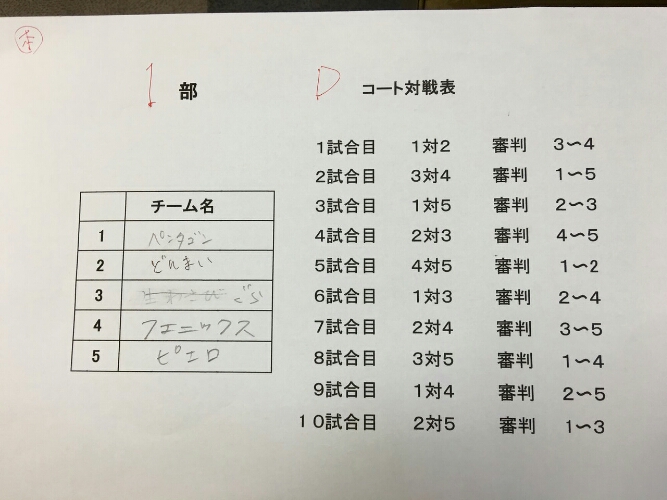 I 部
D コート対戦表
チーム名
1 ペンタゴン
2 どんまい
3
4 フェニックス
5 ピエロ
1試合目 1対2 審判 3〜4
2試合目 3対4 審判 1〜5
3試合目 1対5 審判 2〜3
4試合目 2対3 審判 4〜5
5試合目 4対5 審判 1〜2
6試合目 1対3 審判 2〜4
7試合目 2対4 審判 3〜5
8試合目 3対5 審判 1〜4
9試合目 1対4 審判 2〜5
10試合目 2対5 審判 1〜3